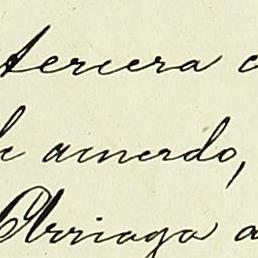 tercera
de acuerdo,
Arriaga a